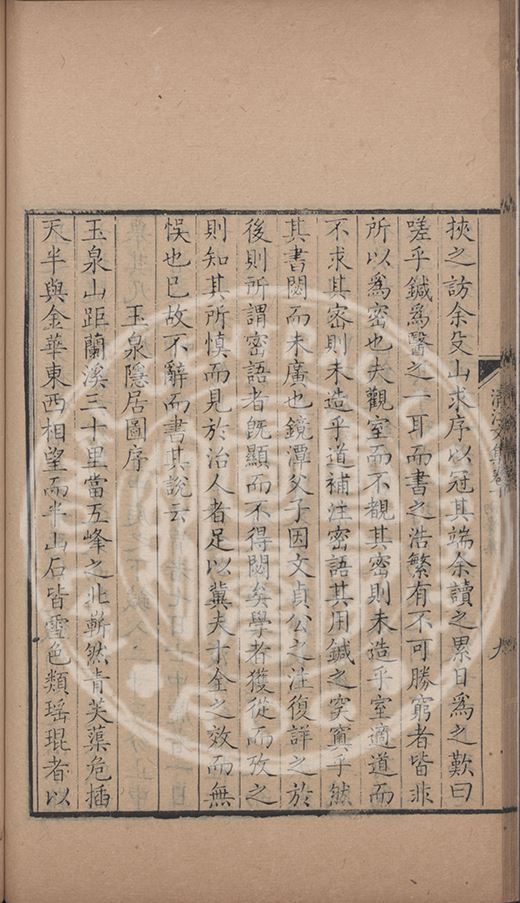 挾之訪余殳山求序以冠其端余讀之累日為之歎曰
嗟乎鍼為醫之一耳而書之浩繁有不可勝窮者皆非
所以為密也夫觀室而不覩其密則未造乎室適道而
不求其密則未造乎道補注密語其用鍼之突奧乎然
其書閟而未廣也鏡潭父子因文貞公之注復詳之於
後則所謂密語者旣顯而不得閟矣學者獲從而攷之
則知其所慎而見於治人者足以冀夫寸金之效而無
悞也已故不辭而書其說云
玉泉隱居圖序
玉泉山距蘭溪三十里當五峰之北嶄然青芙蕖危插
天半與金華東西相望而半山石皆雪色類瑶琨者以